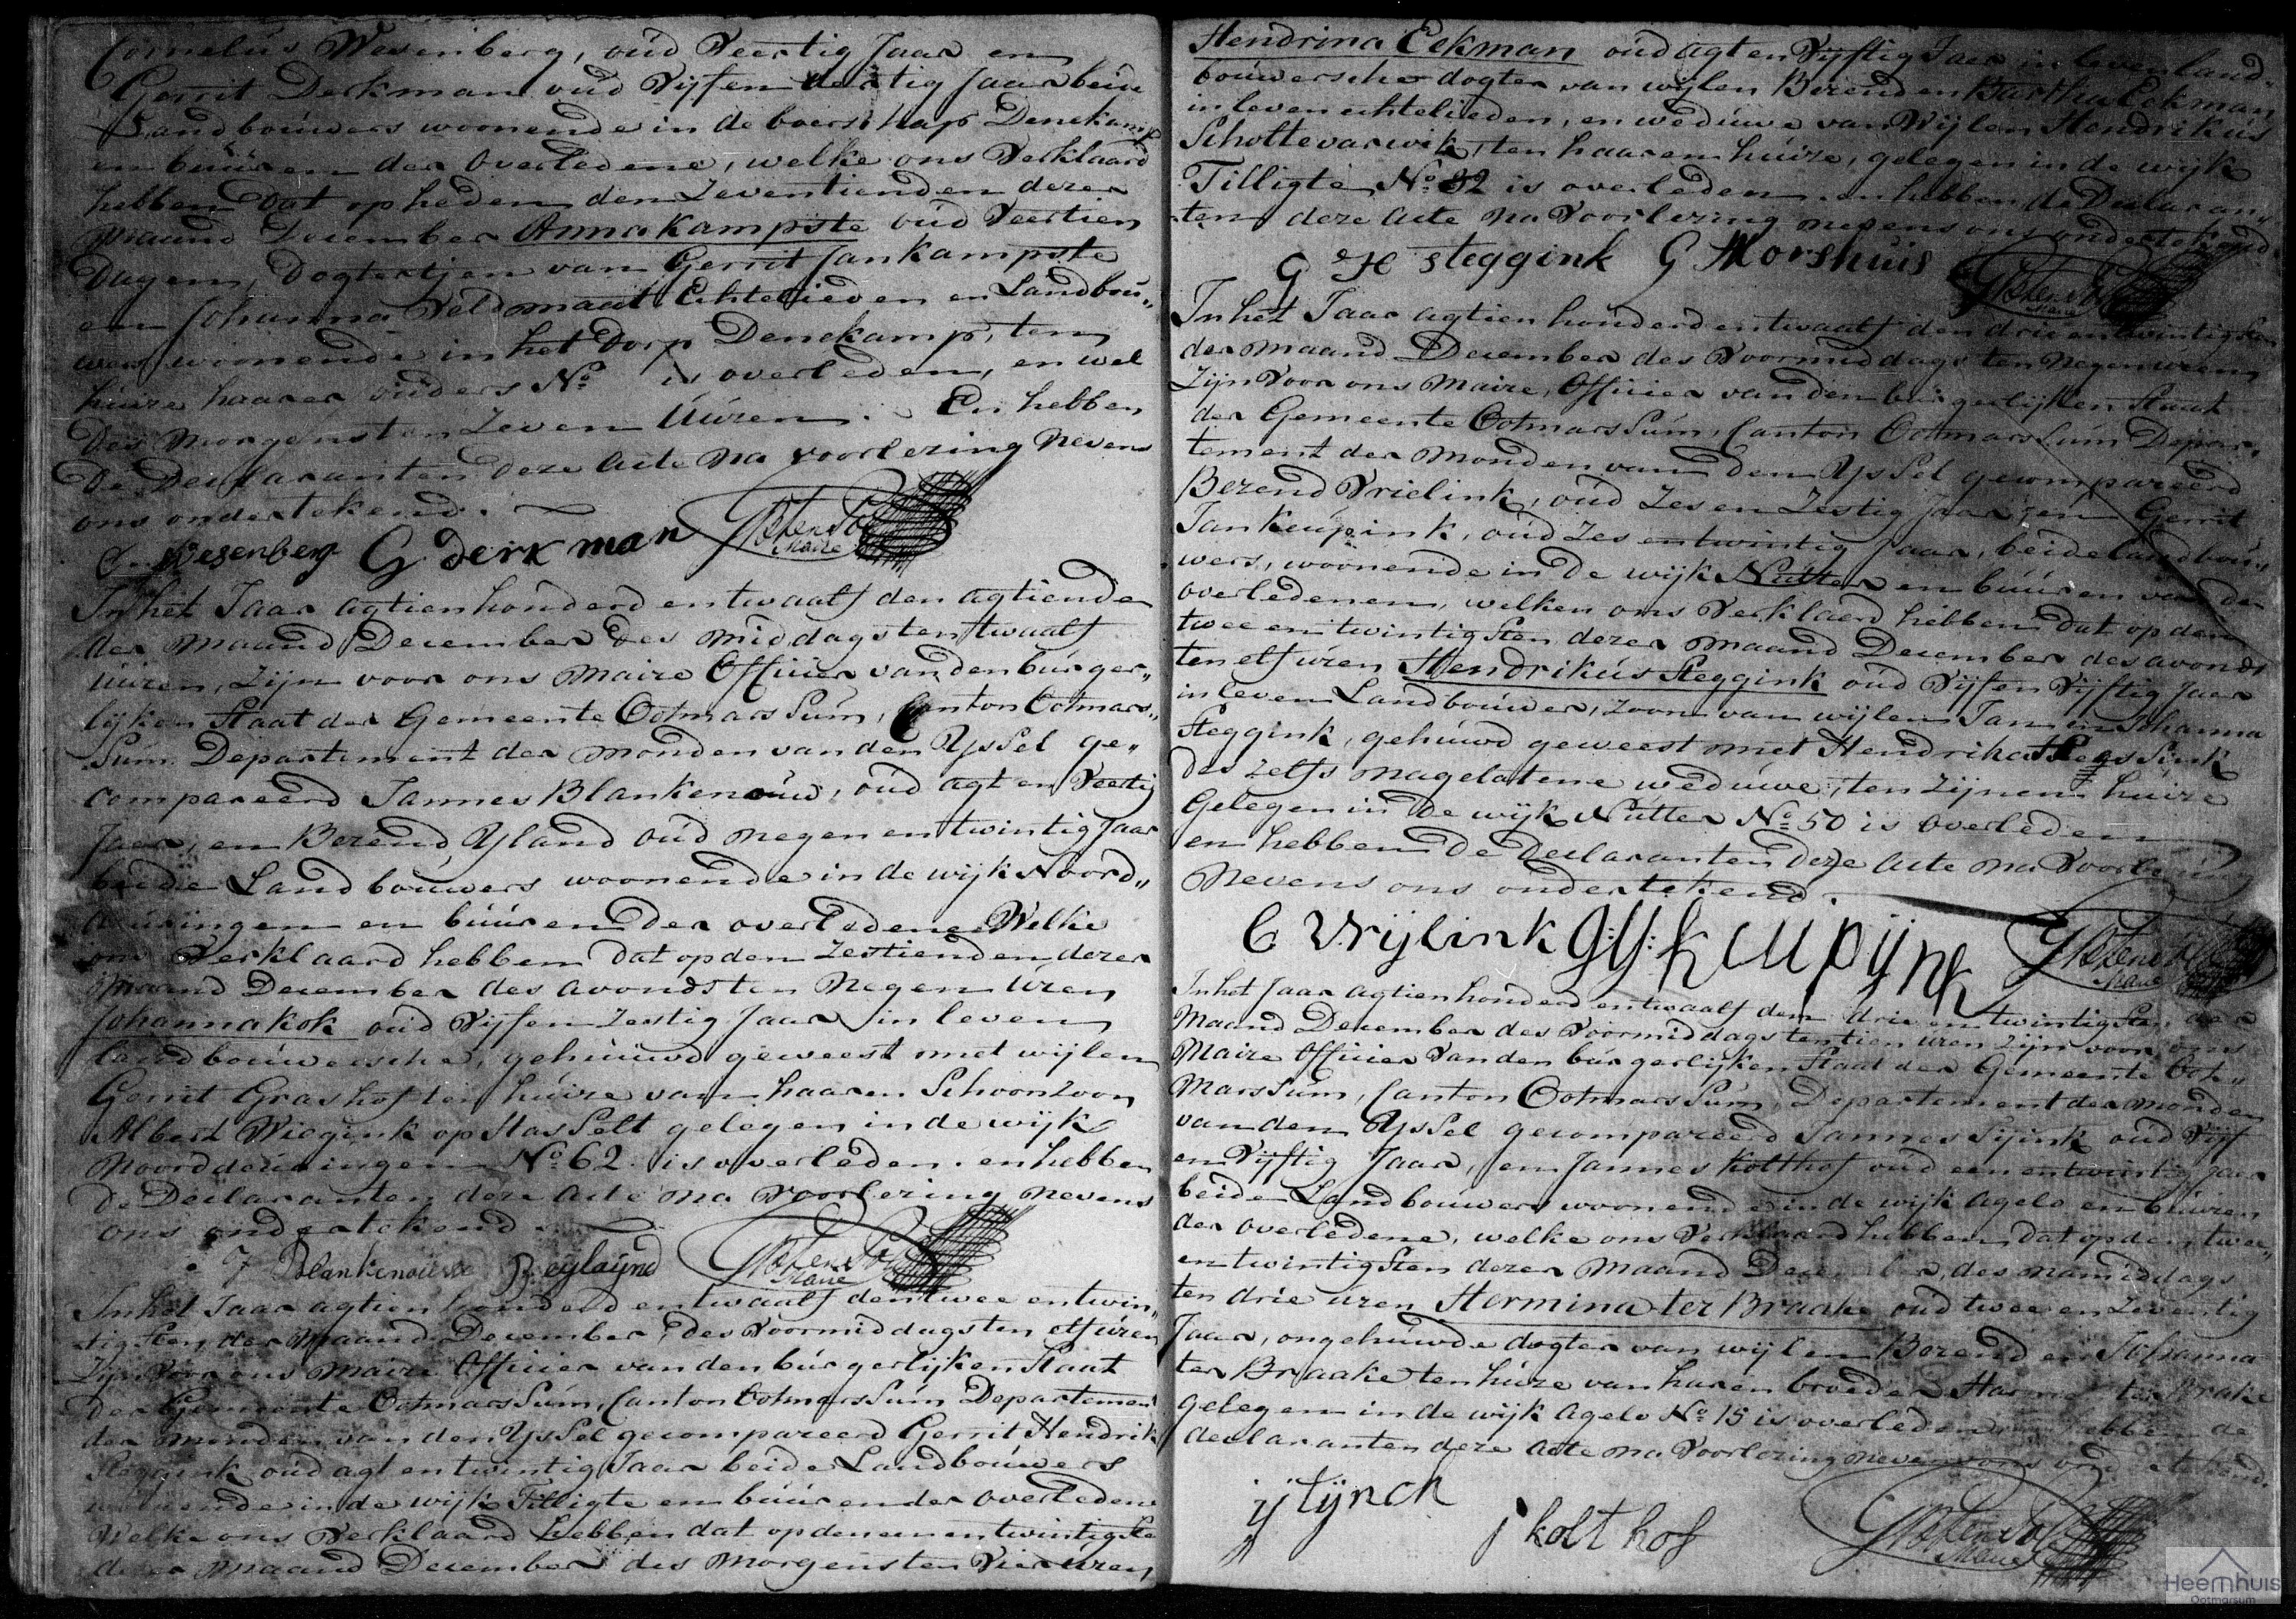 Cornelus Wesenberg, oud Veertig Jaar en
Gerrit Derkman oud Vijf en dertig Jaar beide
Landbouwers woonende in de boerschap Denekamp
en buuren der overledene, welke ons Verklaard
hebben dat op heden den Zeventienden dezer
maand December Anna Kampste oud Veertien
Dagen, Dogtertjen van Gerrit Jan Kampste
en Johanna Veldmaat Echtelieden en Landbou„
wers woonende in het Dorp Denekamp, ten
huize haarer ouders No is overleden, en wel
des Morgens ten Zeven Uuren. En hebben
De Declaranten deze Acte na voorlezing nevens
ons ondertekend.
C. Wesenberg G Derkman
Maire
In het Jaar agtienhonderd en twaalf den agtiende
der maand December des middags ten twaalf
Uuren, Zijn voor ons Maire Officier van den burger„
lijken Staat der Gemeente Ootmarssum, Canton Ootmars„
sum Departement der monden van den Yssel ge„
compareerd Jannes Blankenouw, oud agt en Veertig
Jaar, en Berend Yland oud negen en twintig Jaar
beide Landbouwers woonende in de wijk Noord„
deuringen en buuren der overledene Welke
ons Verklaard hebben dat op den Zestienden dezer
maand December des avonds ten Negen Uren
Johanna Kok oud Vijf en Zestig Jaar in leven
landbouwersche, gehuuwd geweest met wijlen
Gerrit Grashof ten huize van haaren Schoonzoon
Albert Wiegink op Hasselt gelegen in de wijk
Noorddeuringen No 62. is overleden. en hebben
de Declaranten deze Acte na Voorlezing nevens
ons ondertekend.
J Blankenouw B eylaynd
Maire
In het Jaar agtien honderd en twaalf den twee en twin„
tigsten der maand December, des Voormiddags ten elf uren
Zijn voor ons Maire Officier van den burgerlijken Staat
der Gemeente Ootmarssum, Canton Ootmarssum Departement
der monden van den Yssel gecompareerd Gerrit Hendrik
Steggink oud agt en twintig Jaar beide Landbouwers
woonende in de wijk Tilligte en buuren der overledene
Welke ons Verklaard hebben dat op den een en twintigste
dezer maand December des morgens ten Vier uren
Hendrina Eekman oud agt en Vijftig Jaar in leven land„
bouwersche dogter van wijlen Berend en Bartha Eekman
in leven echtelieden, en weduwe van Wijlen Hendrikus
Scholte var wik, ten haaren huize, gelegen in de wijk
Tilligte No 32 is overleden. en hebben de Declaran„
ten deze Acte na Voorlezing nevens ons ondertekend.
G H steggink G Morshuis
Maire
In het Jaar agtien honderd en twaalf den drie en twintigsten
der maand December des Voormiddags ten Negen uren
Zijn Voor ons Maire, Officier van den burgerlijken Staat
der Gemeente Ootmarssum, Canton Ootmarssum Depar„
tement der Monden van den Yssel gecompareerd
Berend Vrielink, oud Zes en Zestig Jaar, en Gerrit
Jan Keupink, oud Zes en twintig Jaar, beide landbou„
wers, woonende in de wijk Nutter en buuren van de
overledenen, welken ons Verklaard hebben dat op den
twee en twintigsten dezer maand December des avonds
ten elf uren Hendrikus Steggink oud Vijf en Vijftig Jaar
in leven Landbouwer, zoon van wijlen Jan en Johanna
Steggink, gehuwd geweest met Hendrika
des zelfs nagelatene weduwe, ten zijnen huize
Gelegen in de wijk Nutter No 50 is overleden
en hebben de Declaranten deze Acte na Voorlezing
Nevens ons ondertekend.
B Vrijlink G:Y:Keupijnk
Maire
In het Jaar agtien honderd en twaalf den drie en twintigsten der
Maand December des Voormiddags ten tien uren Zijn voor ons
Maire Officier Van den burgerlijken Staat der Gemeente Oot„
marssum, Canton Ootmarssum, Departement der monden
van den Yssel gecompareerd Jannes Tijink oud Vijf
en Vijftig Jaar, en Jannes Kolthof oud een en twintig Jaar
beide Landbouwers woonende in de wijk Agelo en buuren
der overledene, welke ons Verklaard hebben, dat op den twee„
en twintigsten dezer Maand December, des namiddags
ten drie uren Hermina ter Braake oud twee en Zeventig
Jaar, ongehuwde dogter van wijlen Berend en Johanna
ter Braake ten huize van haren broeder Harmen ter Brake
gelegen in de wijk Agelo No 15 is overleden en hebben de
declaranten deze Acte na Voorlezing nevens ons ondertekend.
j tijnck
j kolthof
Maire
Heemhuis
Ootmarsum